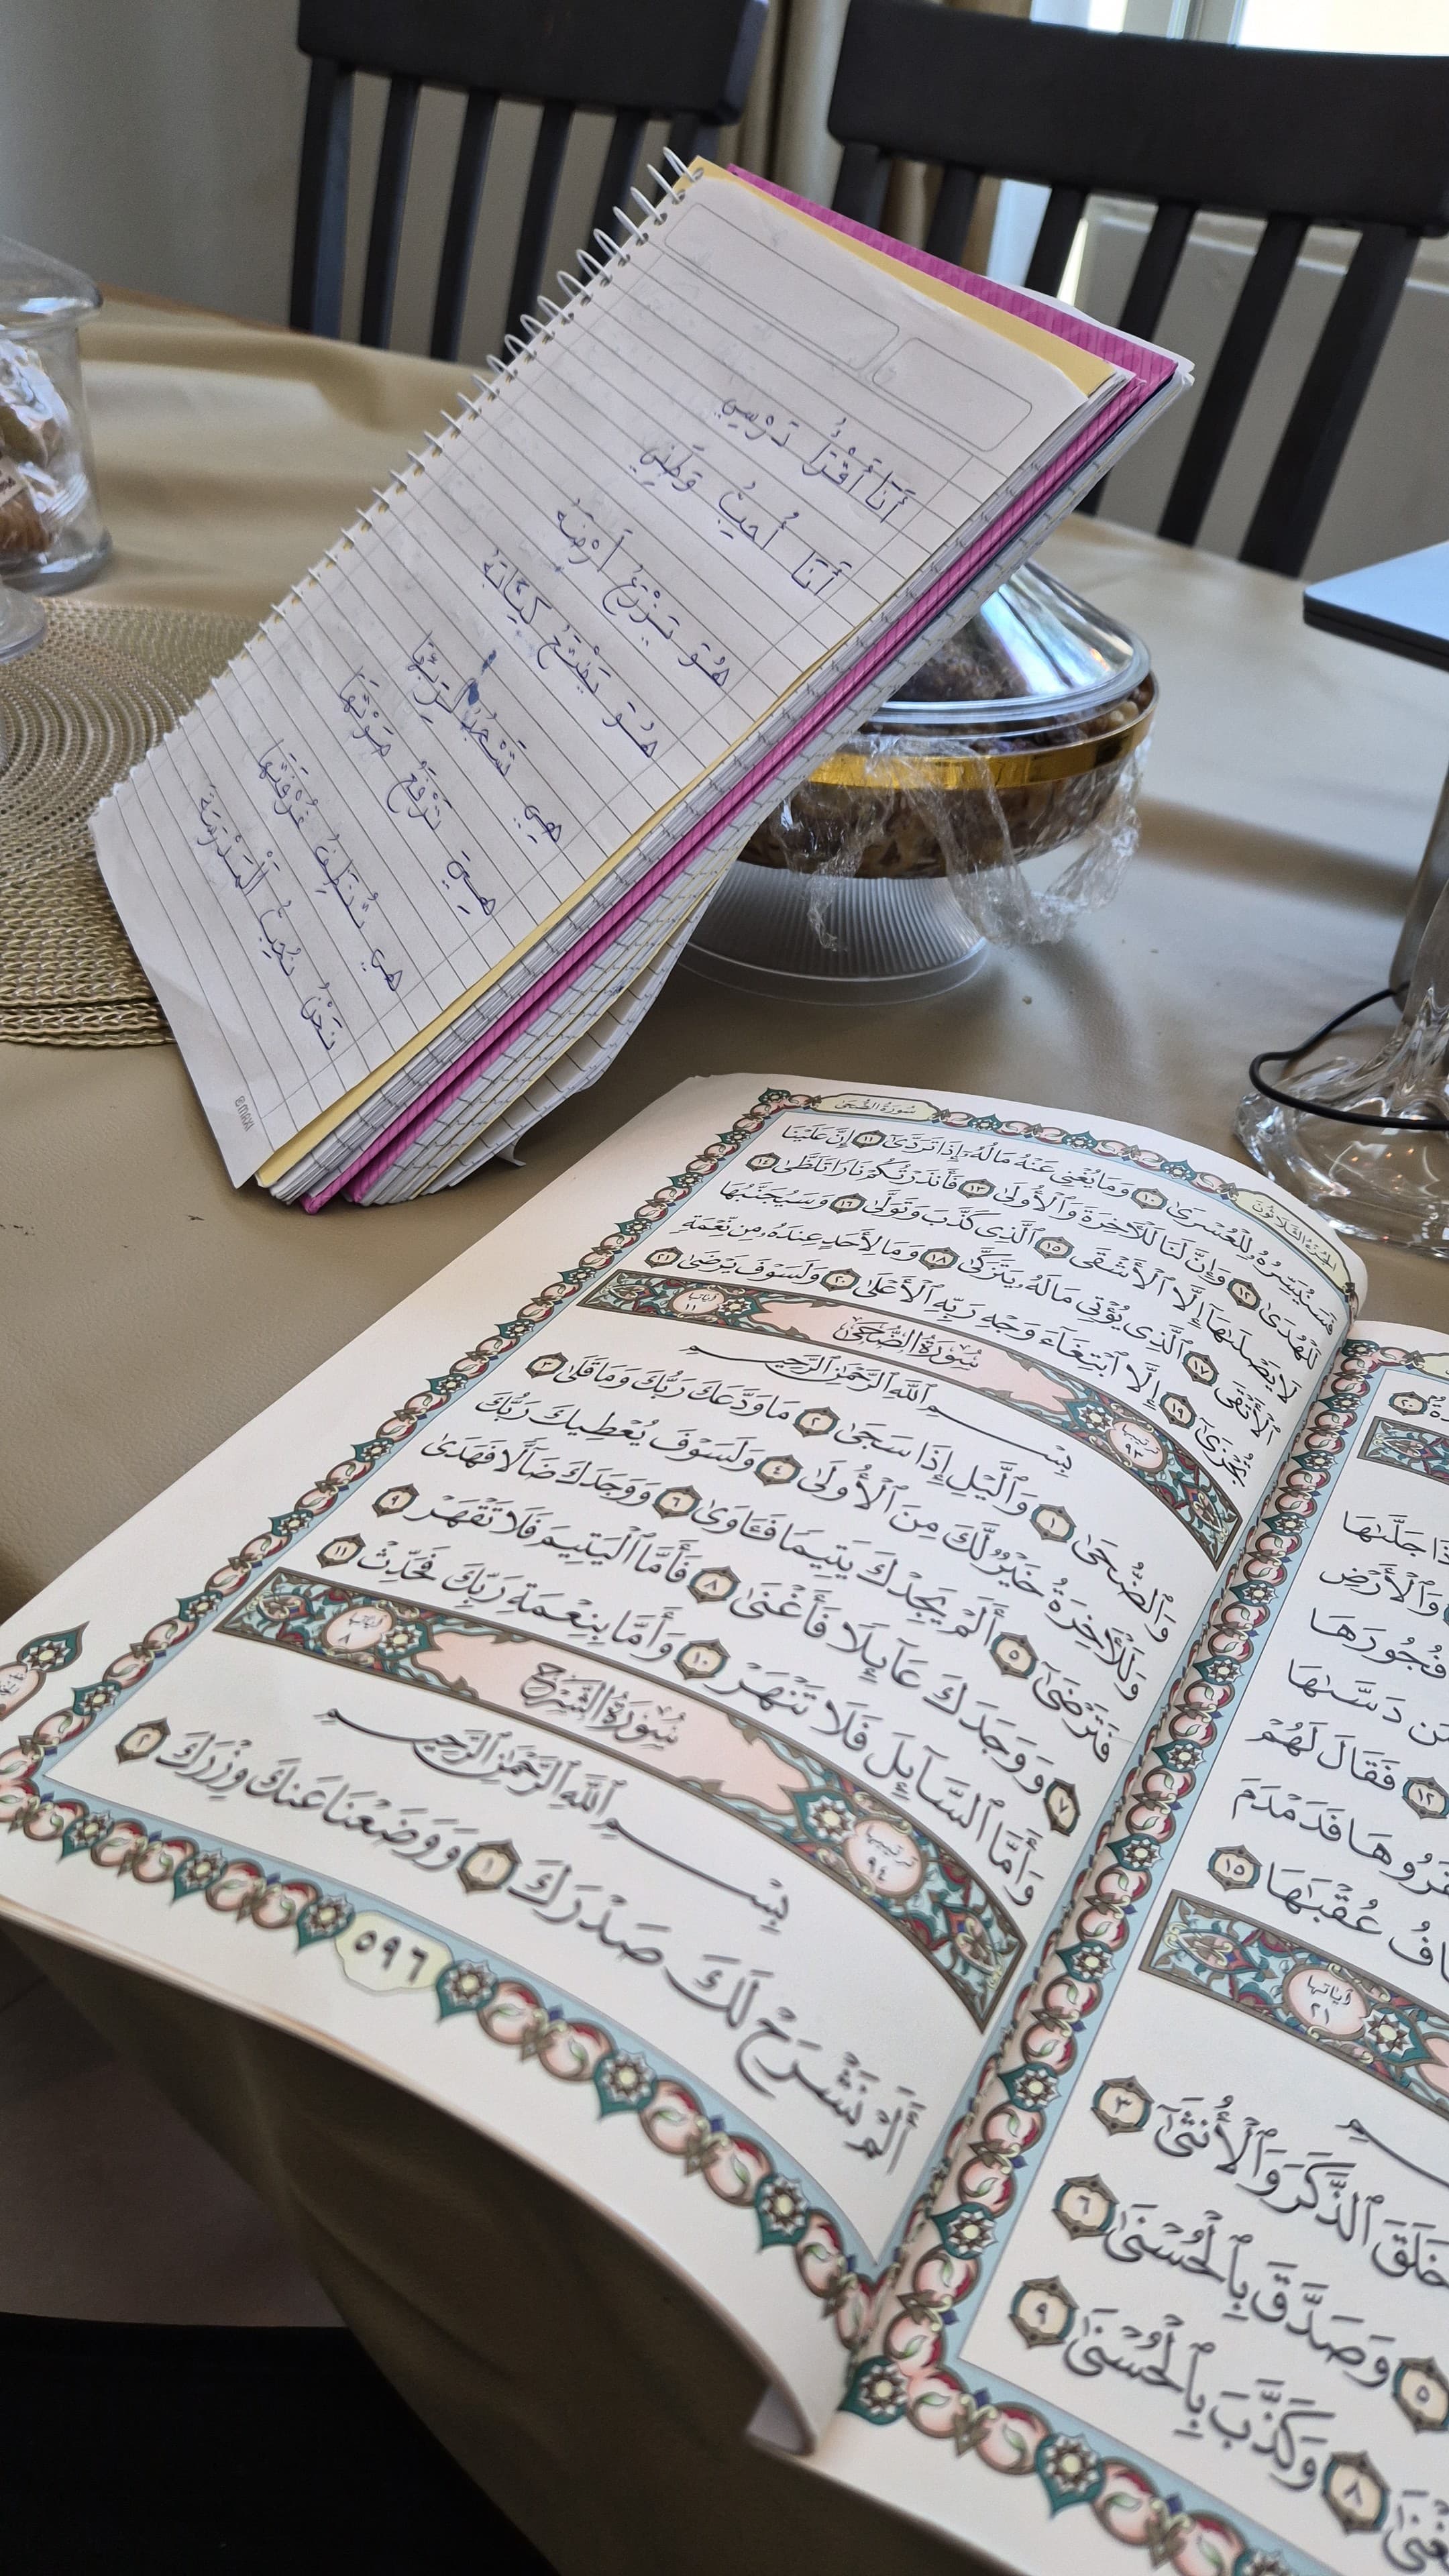 أَنَا أَقْرَأُ دَرْسِي
أَنَا أُحِبُّ وَطَنِي
هُوَ يَزْرَعُ أَرْضَهُ
هُوَ يَفْتَحُ كِتَابَهُ
هِيَ تَسْجُدُ لِرَبِّهَا
هِيَ تَرْفَعُ صَوْتَهَا
هِيَ تُنَظِّفُ غُرْفَتَهَا
نَحْنُ نُحِبُّ الْمَدْرَسَةَ
سُورَةُ الضُّحَى
الجُزْءُ الثَّلَاثُونَ
فَسَنُيَسِّرُهُۥ لِلْعُسْرَىٰ ١٠ وَمَا يُغْنِى عَنْهُ مَالُهُۥٓ إِذَا تَرَدَّىٰٓ ١١ إِنَّ عَلَيْنَا
لَلْهُدَىٰ ١٢ وَإِنَّ لَنَا لَلْـَٔاخِرَةَ وَٱلْأُولَىٰ ١٣ فَأَنذَرْتُكُمْ نَارًا تَلَظَّىٰ ١٤
لَا يَصْلَىٰهَآ إِلَّا ٱلْأَشْقَى ١٥ ٱلَّذِى كَذَّبَ وَتَوَلَّىٰ ١٦ وَسَيُجَنَّبُهَا
ٱلْأَتْقَى ١٧ ٱلَّذِى يُؤْتِى مَالَهُۥ يَتَزَكَّىٰ ١٨ وَمَا لِأَحَدٍ عِندَهُۥ مِن نِّعْمَةٍ
تُجْزَىٰٓ ١٩ إِلَّا ٱبْتِغَآءَ وَجْهِ رَبِّهِ ٱلْأَعْلَىٰ ٢٠ وَلَسَوْفَ يَرْضَىٰ ٢١
ترتيبها ٩٣ سُورَةُ الضُّحَى آياتها ١١
بِسْمِ ٱللَّهِ ٱلرَّحْمَٰنِ ٱلرَّحِيمِ
وَٱلضُّحَىٰ ١ وَٱلَّيْلِ إِذَا سَجَىٰ ٢ مَا وَدَّعَكَ رَبُّكَ وَمَا قَلَىٰ ٣
وَلَلْـَٔاخِرَةُ خَيْرٌ لَّكَ مِنَ ٱلْأُولَىٰ ٤ وَلَسَوْفَ يُعْطِيكَ رَبُّكَ
فَتَرْضَىٰٓ ٥ أَلَمْ يَجِدْكَ يَتِيمًا فَـَٔاوَىٰ ٦ وَوَجَدَكَ ضَآلًّا فَهَدَىٰ
٧ وَوَجَدَكَ عَآئِلًا فَأَغْنَىٰ ٨ فَأَمَّا ٱلْيَتِيمَ فَلَا تَقْهَرْ ٩
وَأَمَّا ٱلسَّآئِلَ فَلَا تَنْهَرْ ١٠ وَأَمَّا بِنِعْمَةِ رَبِّكَ فَحَدِّثْ ١١
ترتيبها ٩٤ سُورَةُ الشَّرْحِ آياتها ٨
بِسْمِ ٱللَّهِ ٱلرَّحْمَٰنِ ٱلرَّحِيمِ
أَلَمْ نَشْرَحْ لَكَ صَدْرَكَ ١ وَوَضَعْنَا عَنكَ وِزْرَكَ ٢
٥٩٦
جَلَّىٰهَا
وَٱلْأَرْضِ
فُجُورَهَا
مَن دَسَّىٰهَا
١٢ فَقَالَ لَهُمْ
فَدَمْدَمَ
عُقْبَٰهَا ١٥
آياتها ٢١
خَلَقَ ٱلذَّكَرَ وَٱلْأُنثَىٰٓ ٣
٥ وَصَدَّقَ بِٱلْحُسْنَىٰ ٦
٨ وَكَذَّبَ بِٱلْحُسْنَىٰ ٩